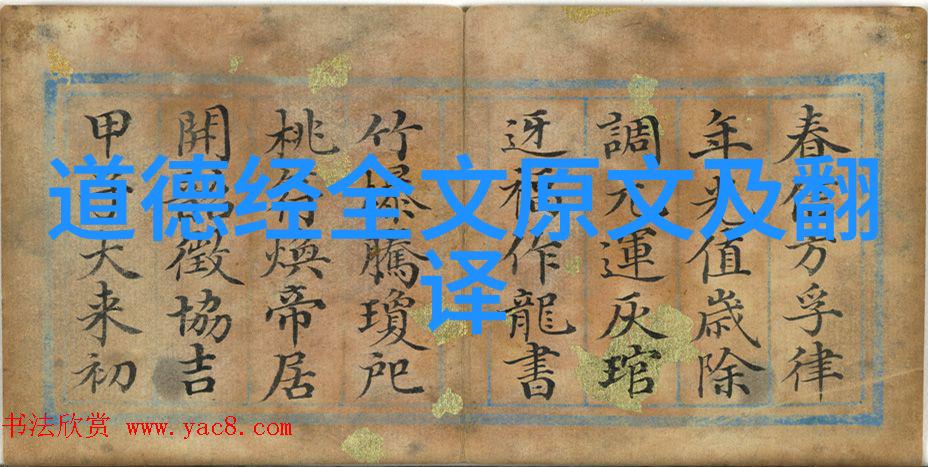 道德经全文原文及翻
译
春方孚律
年光值歳除
調元運灰琯
迓福作龍書
竹爆騰瓊
桃符煥帝居
開徵協吉
甲大来初
书法欣赏 www.yac8.com